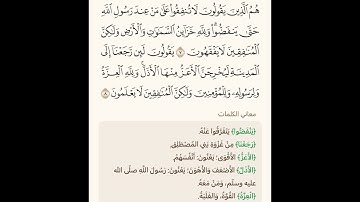 هُمُ ٱلَّذِينَ يَقُولُونَ لَا تُنفِقُوا۟ عَلَىٰ مَنْ عِندَ رَسُولِ ٱللَّهِ
حَتَّىٰ يَنفَضُّوا۟ ۗ وَلِلَّهِ خَزَآئِنُ ٱلسَّمَٰوَٰتِ وَٱلْأَرْضِ وَلَٰكِنَّ
ٱلْمُنَٰفِقِينَ لَا يَفْقَهُونَ ٧ يَقُولُونَ لَئِن رَّجَعْنَآ إِلَى
ٱلْمَدِينَةِ لَيُخْرِجَنَّ ٱلْأَعَزُّ مِنْهَا ٱلْأَذَلَّ ۚ وَلِلَّهِ ٱلْعِزَّةُ
وَلِرَسُولِهِۦ وَلِلْمُؤْمِنِينَ وَلَٰكِنَّ ٱلْمُنَٰفِقِينَ لَا يَعْلَمُونَ ٨
معاني الكلمات
﴿يَنفَضُّوا﴾ يَتَفَرَّقُوا عَنْهُ.
﴿رَجَعْنَا﴾ مِنْ غَزْوَةِ بَنِي المُصْطَلِقِ.
﴿الأَعَزُّ﴾ الأَقْوَى؛ يَعْنُونَ: أَنْفُسَهُمْ.
﴿الأَذَلَّ﴾ الأَضْعَفَ وَالأَهْوَنَ؛ يَعْنُونَ: رَسُولَ اللَّهِ صلَّى الله
عليه وسلَّم، وَمَنْ مَعَهُ.
﴿العِزَّةُ﴾ القُوَّةُ، وَالغَلَبَةُ.